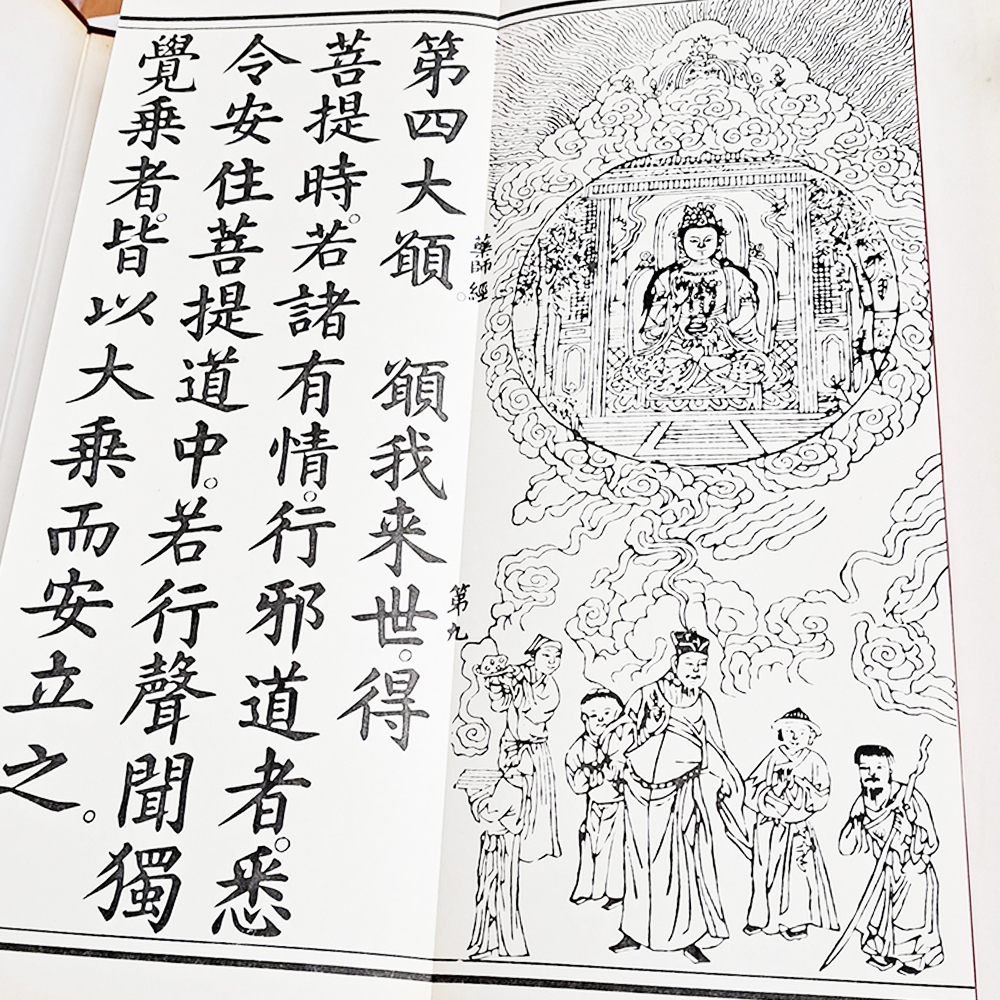 藥師經 第九
第四大願。 願我来世。得
菩提時。若諸有情。行邪道者。悉
令安住菩提道中。若行聲聞獨
覺乘者。皆以大乘而安立之。